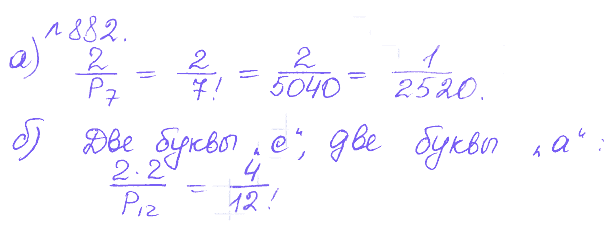 №882.
а) 2/P₇ = 2/7! = 2/5040 = 1/2520.
б) Две буквы „с“, две буквы „а“:
2·2/P₁₂ = 4/12!